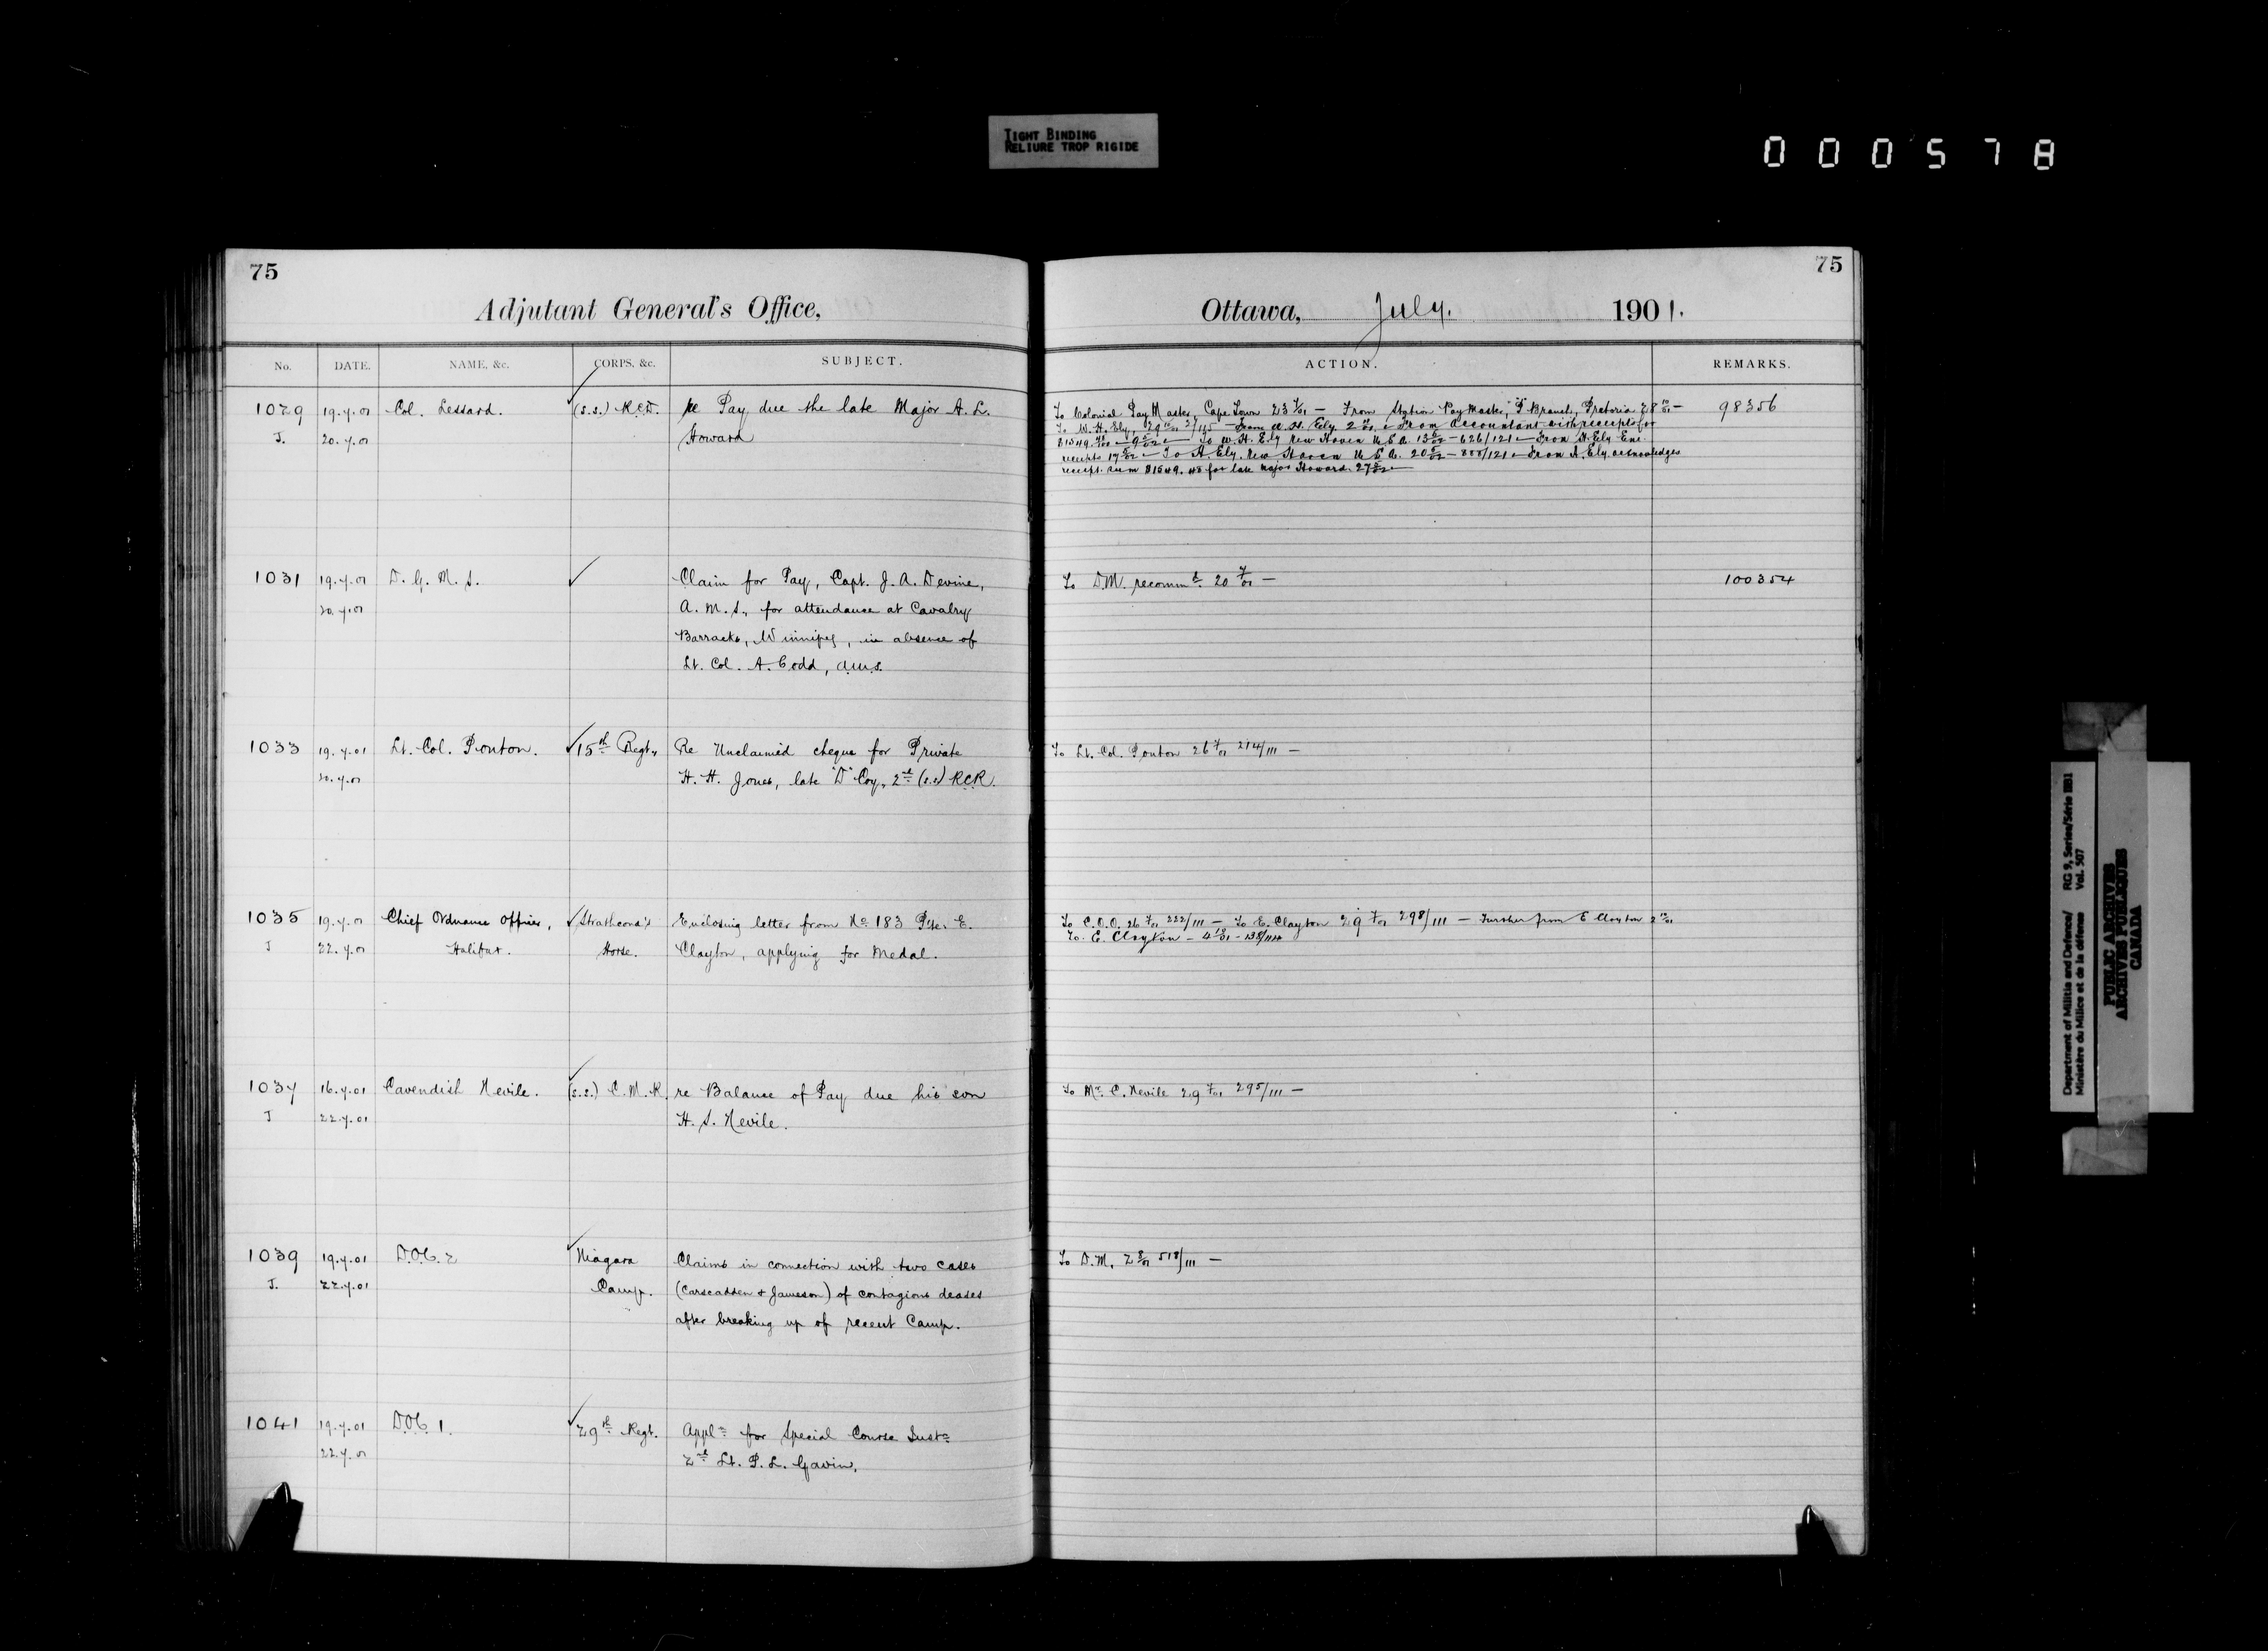 TIGHT BINDING
RELIURE TROP RIGIDE
000578
75
Adjutant General's Office,
No. DATE. NAME, &c. CORPS, &c. SUBJECT.
1029 19.7.01 Col. Lessard. (S.S.) R.C.D. re Pay due the late Major A. L.
J. 20.7.01 Howard
1031 19.7.01 D. G. M. S. Claim for Pay, Capt. J. A. Devine,
20.7.01 A. M. S., for attendance at Cavalry
Barracks, Winnipeg, in absence of
Lt. Col. A. Codd, A.M.S.
1033 19.7.01 Lt. Col. Ponton. 15th Regt. Re Unclaimed cheque for Private
20.7.01 H. H. Jones, late "D" Coy. 2nd (S.S) RCR.
1035 19.7.01 Chief Ordnance Officer, Strathcona's Enclosing letter from No 183 Pte. E.
J 22.7.01 Halifax. Horse. Clayton, applying for Medal.
1037 16.7.01 Cavendish Nevile. (S.S.) C.M.R. re Balance of Pay due his son
J 22.7.01 H. S. Nevile.
1039 19.7.01 D.O.C. 2 Niagara Claims in connection with two cases
J. 22.7.01 Camp. (Carscadden & Jameson) of contagious deases
after breaking up of recent Camp.
1041 19.7.01 D.O.C. 1. 29th Regt. Appln for Special Course Instn
22.7.01 2nd Lt. P. L. Gavin.
75
Ottawa, July. 1901.
ACTION. REMARKS.
To Colonial Pay Master, Cape Town 23 7/01 — From Station Pay Master, "P" Branch, Pretoria 28 10/01 — 98356
To W. H. Ely, 29 2/115 — From W. H. Ely 2 From Accountant with receipts for
$1549.48 To W. H. Ely New Haven U.S.A. 13 — 626/121 — From H. Ely Enc.
receipts 17 To H. Ely. New Haven U.S.A. 20 — 888/121 — From H. Ely acknowledges
receipt sum $1549.48 for late Major Howard. 27
To D.M. recommd. 20 7/01 — 100354
To Lt. Col. Ponton 26 7/01 214/111 —
To C.O.O. 26 7/01 222/111 — To E. Clayton 29 7/01 298/111 — Further from E Clayton 2 12/01
To. E. Clayton — 4 12/01 - 138/114
To Mr. C. Nevile 29 7/01 295/111 —
To D.M. 2 8/01 518/111 —
Department of Militia and Defence/ RG 9, Series/Série IIB1
Ministère du Milice et de la défense Vol. 507
PUBLIC ARCHIVES
ARCHIVES PUBLIQUES
CANADA